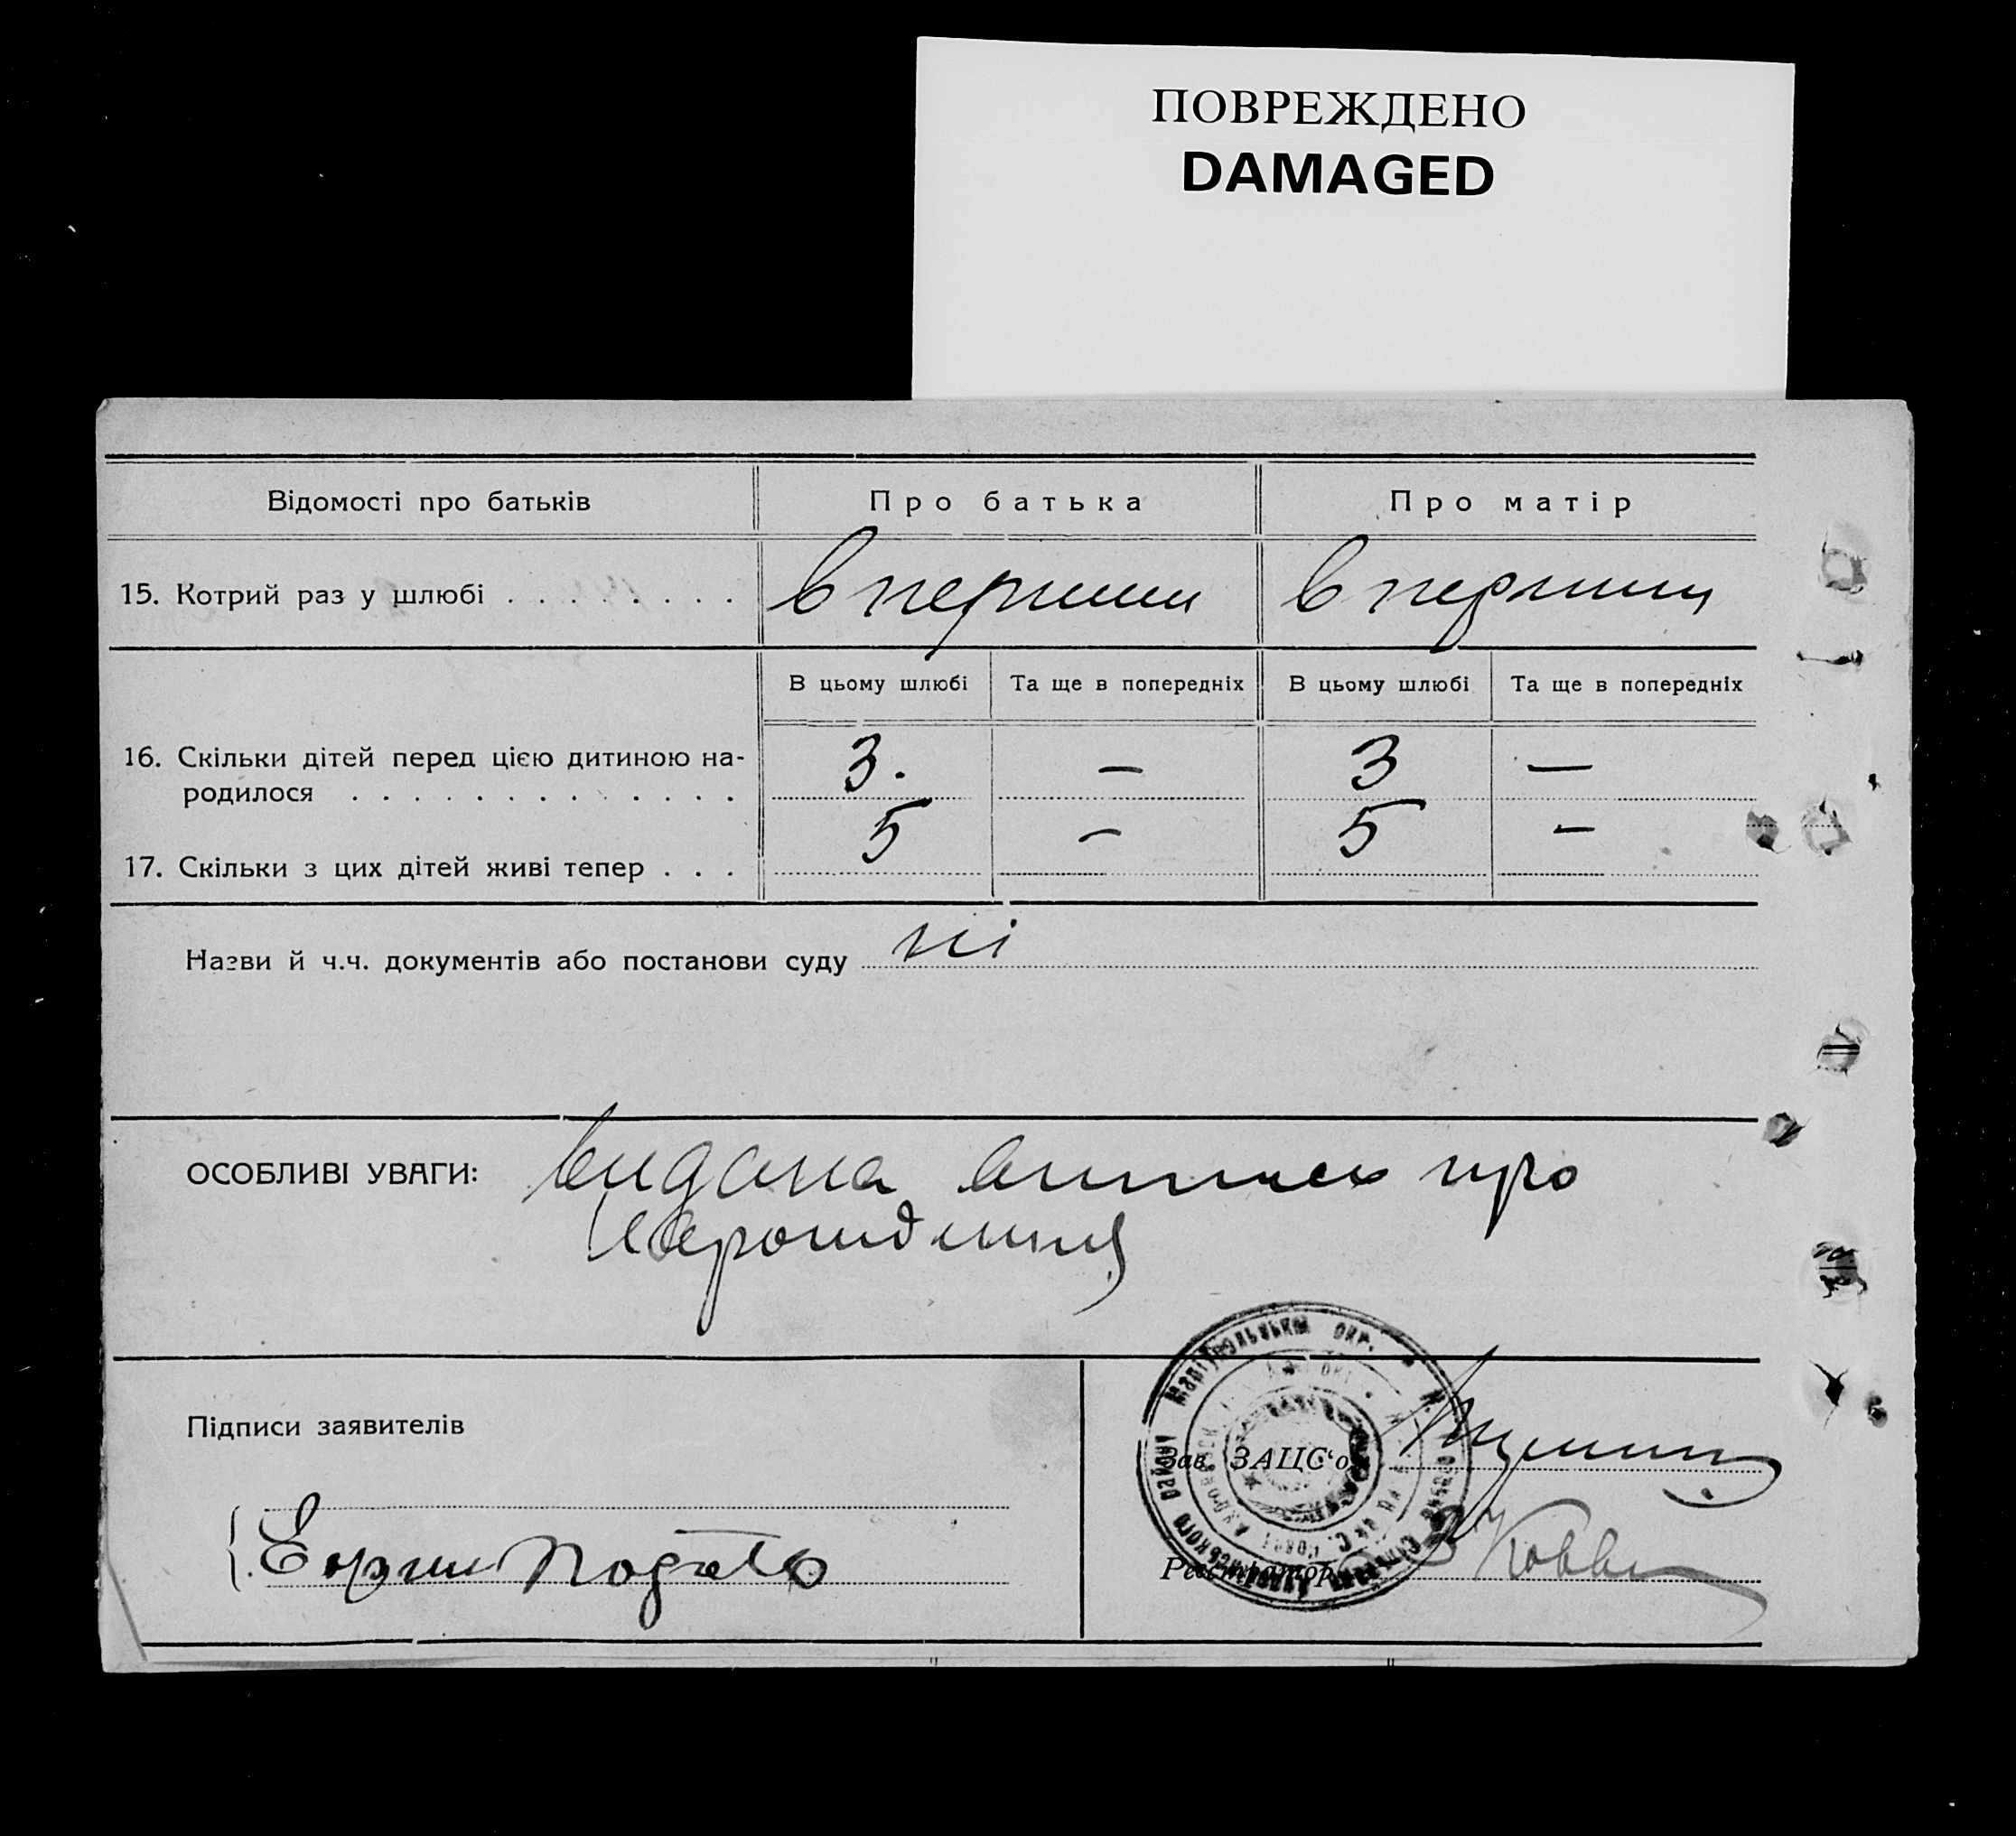 ПОВРЕЖДЕНО
DAMAGED
Відомості про батьків
Про батька
Про матір
15. Котрий раз у шлюбі . . . . . . . .
В перший
В перший
В цьому шлюбі
Та ще в попередніх
В цьому шлюбі
Та ще в попередніх
16. Скільки дітей перед цією дитиною на-
родилося . . . . . . . . . . . . .
3.
—
3
—
17. Скільки з цих дітей живі тепер . . .
5
—
5
—
Назви й ч.ч. документів або постанови суду
ні
ОСОБЛИВІ УВАГИ:
Видана випись про
народження
Підписи заявителів
Зав. ЗАЦС'ом
Реєстратор
Маріупольськ окр.